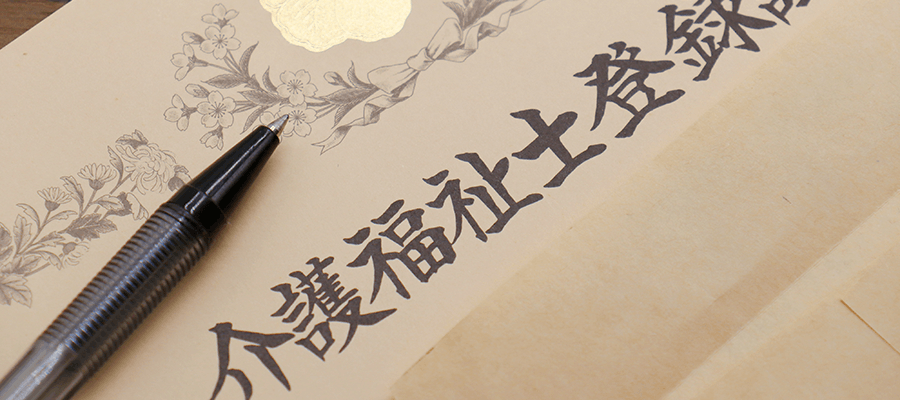 介護福祉士登録